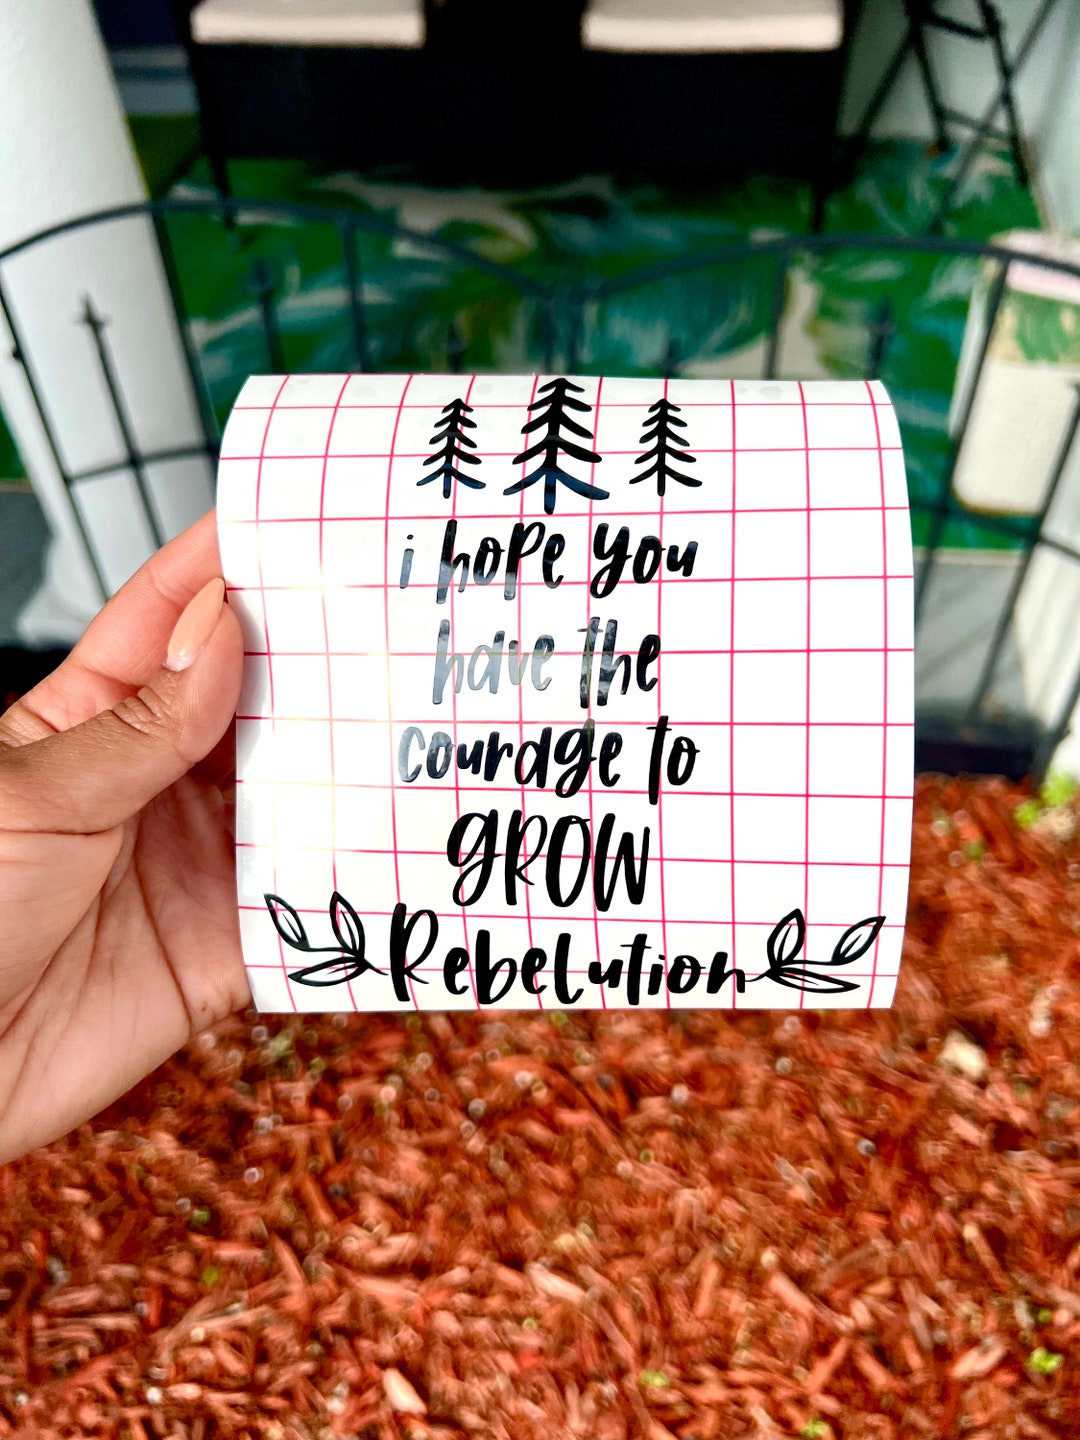 i hope you
have the
courage to
GROW
Rebelution